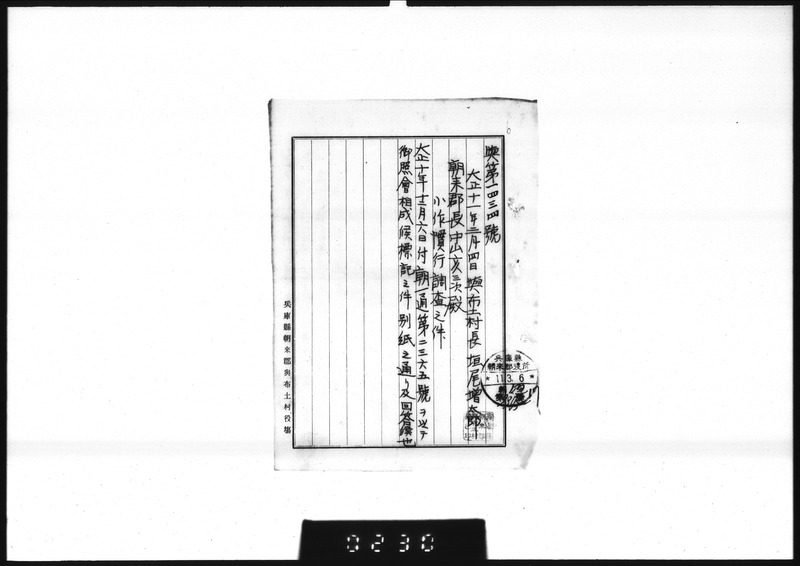 與第一四三四號
大正十一年三月四日 與布土村長 垣尾増太郎
朝来郡長中山亥三次殿
小作慣行調査之件
大正十年十二月六日付朝一通第二三六五號ヲ以テ
御照會相成候標記之件別紙之通リ及回答候也
兵庫縣朝来郡與布土村役場
兵庫縣
朝来郡役所
11.3.6
0230